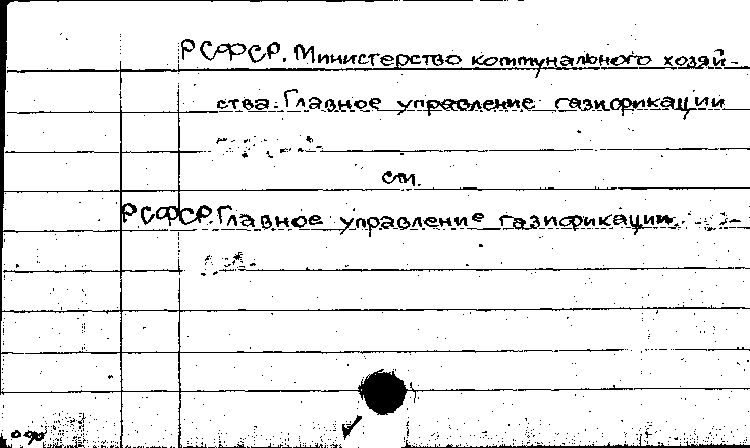 РСФСР. Министерство коммунального хозяй-
ства. Главное управление газификации
см.
РСФСР. Главное управление газификации.